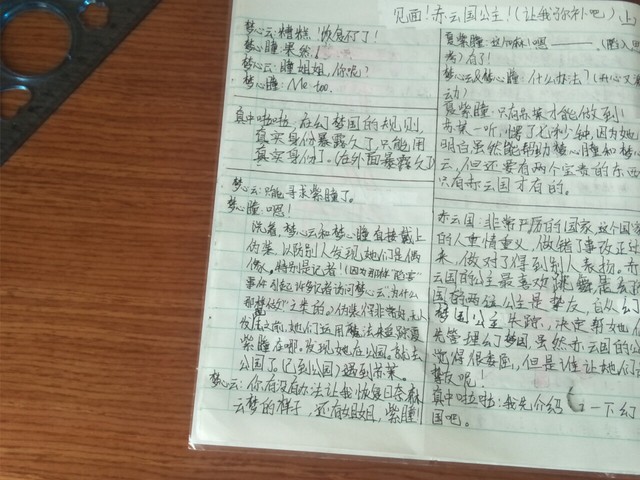 见面!赤云国公主!(让我弥补吧)上
梦心云:糟糕!恢复不了!
梦心瞳:果然!
梦心云:瞳姐姐,你呢?
梦心瞳:Me too.
真中啦啦,在幻梦国的规则,
真实身份暴露久了,只能用
真实身份了。(在外面暴露久了
梦心云:只能寻求紫瞳了。
梦心瞳:嗯!
说着,梦心云和梦心瞳直接戴上
伪装,以防别人发现她们是偶
像。特别是记者!(因为那样
事件引起许多记者访问梦心云,为什么
之类的。)伪装得非常好,无人
发现。之前,她们运用魔法来
紫瞳在哪。发现她在公园。就去
公园了。(已到公园)遇到苏莱。
梦心云:你有没有办法让我恢复日奈麻
云梦的样子,还有姐姐,紫瞳!
夏紫瞳:这个嘛!嗯———。(陷入思
考)有了!
梦心云&梦心瞳:什么办法?(开心又激
动)
夏紫瞳:只有苏莱才能做到!
苏莱一听,愣了七秒钟,因为她
明白虽然能帮助梦心瞳和梦心
云,但还要有两个宝贵的东西
只有赤云国才有的。
赤云国:非常严厉的国家,这个国家
的人重情重义,做错了事改正
来,做对了得到别人表扬。赤
云国的公主最喜欢
国的两位公主是挚友,自从幻
梦国公主失踪,决定帮她
先管理幻梦国。虽然赤云国的公
觉得很查,但是谁让她们
挚友呢!
真中啦啦:我先介绍一下幻
国吧。